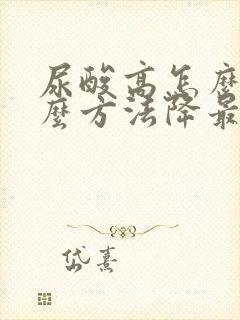 尿酸高怎麼
麼方法降最
岱熹